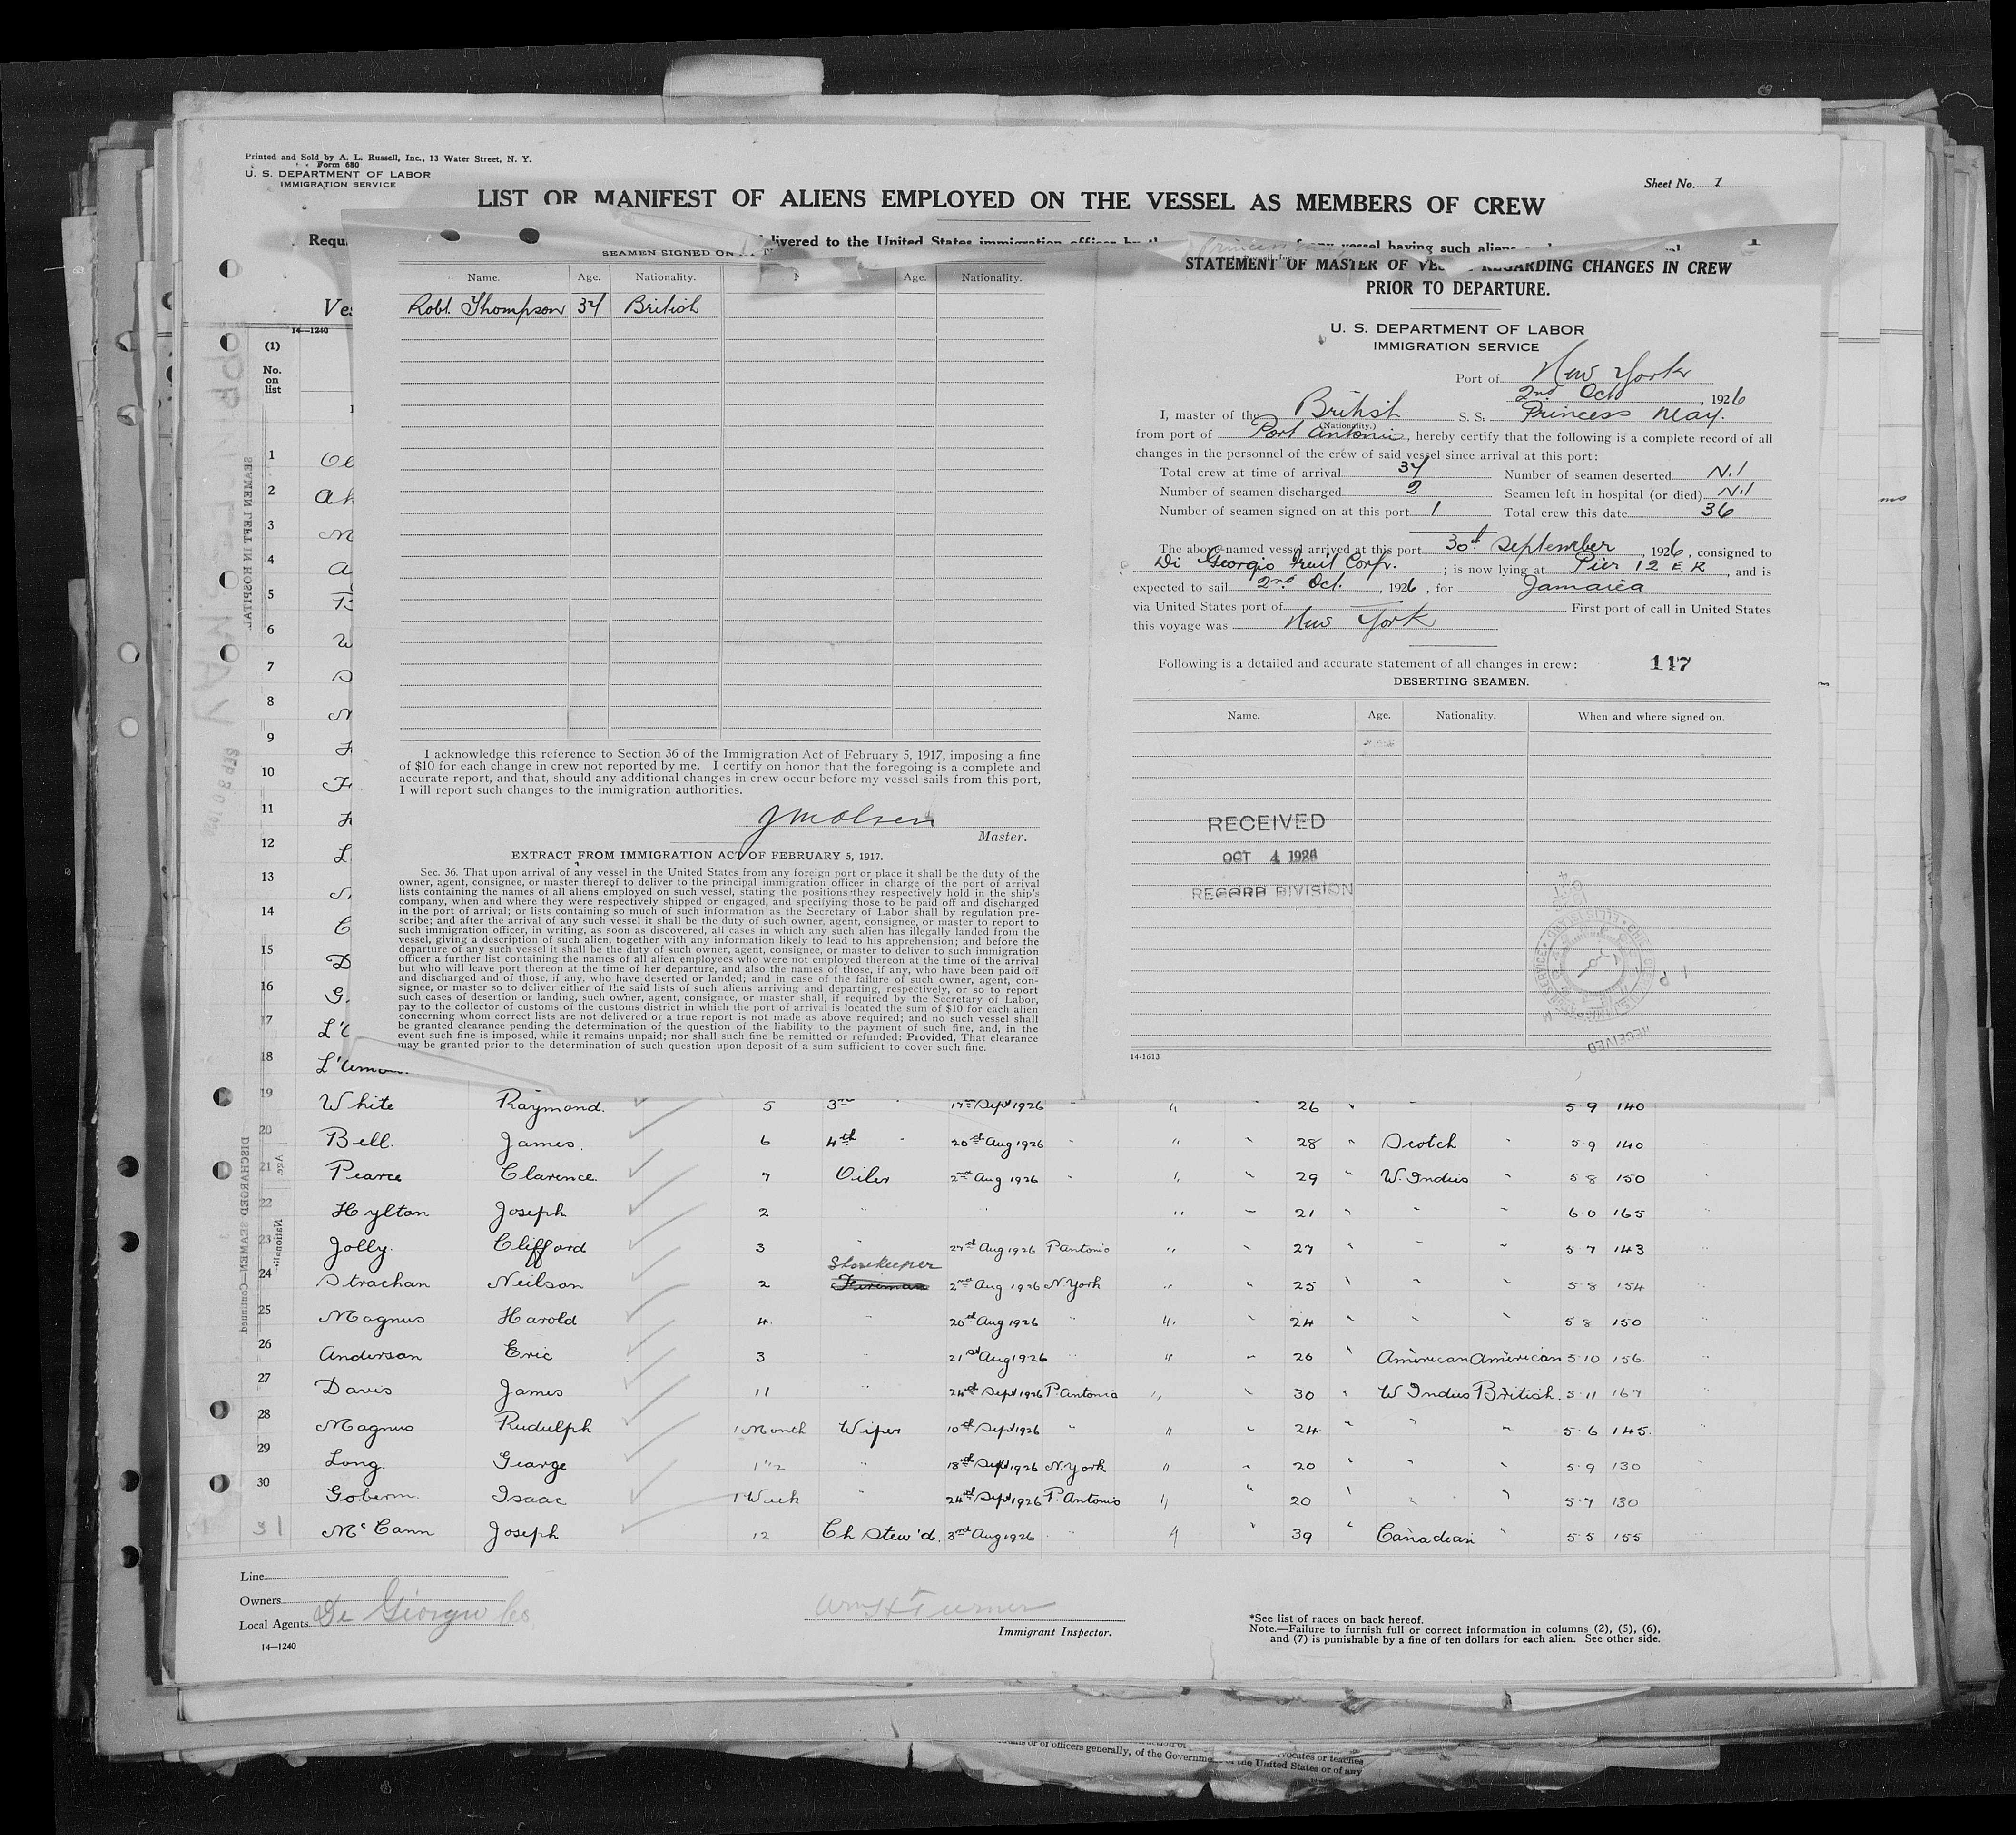 Printed and Sold by A. L. Russell, Inc., 13 Water Street, N. Y.
Form 680
U. S. DEPARTMENT OF LABOR
IMMIGRATION SERVICE
Sheet No. 1
LIST OR MANIFEST OF ALIENS EMPLOYED ON THE VESSEL AS MEMBERS OF CREW
livered to the United States immigration officer by
vessel having such aliens
14-1240
(1)
No.
on
list
SEAMEN SIGNED ON
Name. Age. Nationality. Age. Nationality.
Robt. Thompson 34 British
I acknowledge this reference to Section 36 of the Immigration Act of February 5, 1917, imposing a fine
of $10 for each change in crew not reported by me. I certify on honor that the foregoing is a complete and
accurate report, and that, should any additional changes in crew occur before my vessel sails from this port,
I will report such changes to the immigration authorities.
J M Olsen
Master.
EXTRACT FROM IMMIGRATION ACT OF FEBRUARY 5, 1917.
Sec. 36. That upon arrival of any vessel in the United States from any foreign port or place it shall be the duty of the
owner, agent, consignee, or master thereof to deliver to the principal immigration officer in charge of the port of arrival
lists containing the names of all aliens employed on such vessel, stating the positions they respectively hold in the ship's
company, when and where they were respectively shipped or engaged, and specifying those to be paid off and discharged
in the port of arrival; or lists containing so much of such information as the Secretary of Labor shall by regulation pre-
scribe; and after the arrival of any such vessel it shall be the duty of such owner, agent, consignee, or master to report to
such immigration officer, in writing, as soon as discovered, all cases in which any such alien has illegally landed from the
vessel, giving a description of such alien, together with any information likely to lead to his apprehension; and before the
departure of any such vessel it shall be the duty of such owner, agent, consignee, or master to deliver to such immigration
officer a further list containing the names of all alien employees who were not employed thereon at the time of the arrival
but who will leave port thereon at the time of her departure, and also the names of those, if any, who have been paid off
and discharged and of those, if any, who have deserted or landed; and in case of the failure of such owner, agent, con-
signee, or master so to deliver either of the said lists of such aliens arriving and departing, respectively, or so to report
such cases of desertion or landing, such owner, agent, consignee, or master shall, if required by the Secretary of Labor,
pay to the collector of customs of the customs district in which the port of arrival is located the sum of $10 for each alien
concerning whom correct lists are not delivered or a true report is not made as above required; and no such vessel shall
be granted clearance pending the determination of the question of the liability to the payment of such fine, and, in the
event such fine is imposed, while it remains unpaid; nor shall such fine be remitted or refunded: Provided, That clearance
may be granted prior to the determination of such question upon deposit of a sum sufficient to cover such fine.
STATEMENT OF MASTER OF VESSEL REGARDING CHANGES IN CREW
PRIOR TO DEPARTURE.
U. S. DEPARTMENT OF LABOR
IMMIGRATION SERVICE
Port of New York
2nd Oct, 1926
I, master of the British S. S. Princess May.
(Nationality.)
from port of Port Antonio, hereby certify that the following is a complete record of all
changes in the personnel of the crew of said vessel since arrival at this port:
Total crew at time of arrival 37 Number of seamen deserted Nil
Number of seamen discharged 2 Seamen left in hospital (or died) Nil
Number of seamen signed on at this port 1 Total crew this date 36
The above-named vessel arrived at this port 30th September, 1926, consigned to
Di Georgio Fruit Corp. ; is now lying at Pier 12 E. R, and is
expected to sail 2nd Oct., 1926, for Jamaica
via United States port of First port of call in United States
this voyage was New York
Following is a detailed and accurate statement of all changes in crew: 117
DESERTING SEAMEN.
Name. Age. Nationality. When and where signed on.
RECEIVED
OCT 4 1926
RECORD DIVISION
14-1613
19 White Raymond. 5 3rd " 17th Sept 1926 " " 26 " 5 9 140
20 Bell. James. 6 4th " 20th Aug 1926 " " " 28 " Scotch " 5 9 140
21 Pearce Clarence. 7 Oiler 2nd Aug 1926 " " " 29 " W. Indies " 5 8 150
22 Hylton Joseph 2 " " " " " 21 " " " 6 0 165
23 Jolly. Clifford 3 " 27th Aug 1926 P Antonio " " 27 " " " 5 7 143
Storekeeper
24 Strachan Neilson 2 Fireman 2nd Aug 1926 N York " " 25 " " " 5 8 154
25 Magnus Harold 4. " 20th Aug 1926 " " " 24 " " " 5 8 150
26 Anderson Eric 3 " 21st Aug 1926 " " " 26 " American American 5 10 156
27 Davis James 11 " 24th Sept 1926 P. Antonio " " 30 " W Indies British. 5 11 167
28 Magnus Rudulph 1 Month Wiper 10th Sept 1926 " " " 24 " " " 5 6 145
29 Long. George 1 1/2 " 18th Sept 1926 N. York " " 20 " " " 5 9 130
30 Goberm. Isaac 1 Week " 24th Sept 1926 P. Antonio " " 20 " " " 5 7 130
31 McCann Joseph 12 Ch Stew'd. 3rd Aug 1926 " " " 39 " Canadian " 5 5 155
Line
Owners
Local Agents Di Giorgio Co.
14-1240
Immigrant Inspector.
*See list of races on back hereof.
Note.—Failure to furnish full or correct information in columns (2), (5), (6),
and (7) is punishable by a fine of ten dollars for each alien. See other side.
or of officers generally, of the Governme
the United States or of any